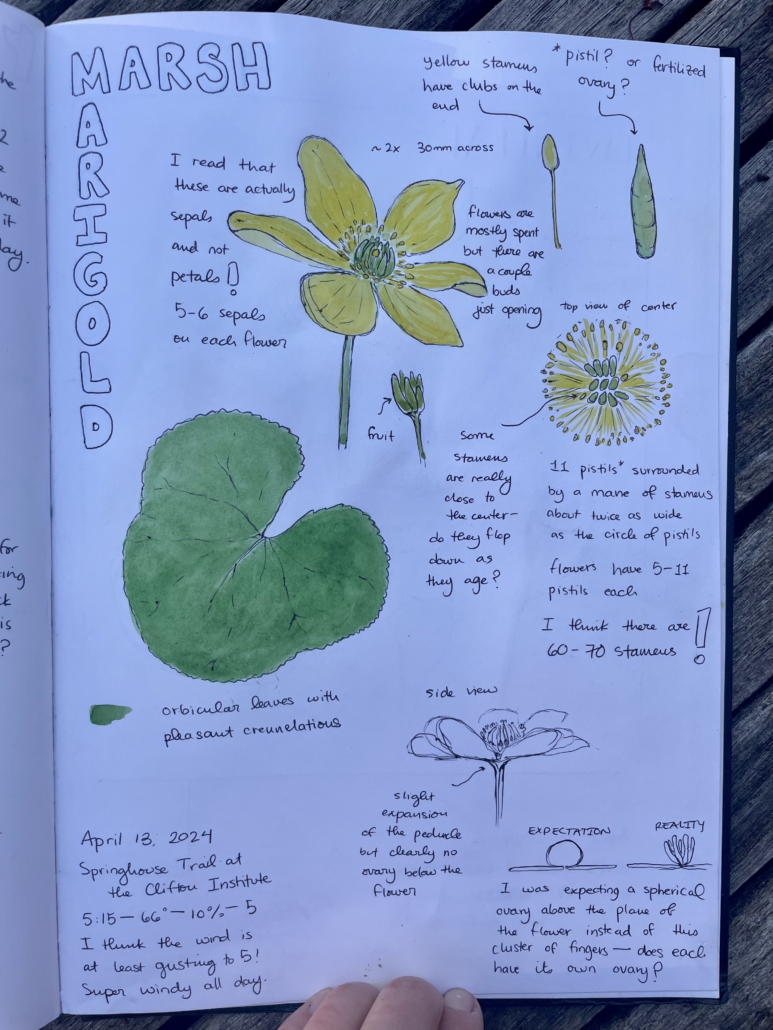 MARSH
MARIGOLD
yellow stamens
have clubs on the
end
* pistil? or fertilized
ovary?
~2x 30mm across
I read that
these are actually
sepals
and not
petals!
5-6 sepals
on each flower
flowers are
mostly spent
but there are
a couple
buds
just opening
top view of center
fruit
some
stamens
are really
close to
the center-
do they flop
down as
they age?
11 pistils* surrounded
by a mane of stamens
about twice as wide
as the circle of pistils
flowers have 5-11
pistils each
I think there are
60-70 stamens!
orbicular leaves with
pleasant crennelations
side view
slight
expansion
of the peduncle
but clearly no
ovary below the
flower
EXPECTATION
REALITY
I was expecting a spherical
ovary above the plane of
the flower instead of this
cluster of fingers — does each
have its own ovary?
April 13, 2024
Springhouse Trail at
the Clifton Institute
5:15 — 66° — 10% — 5
I think the wind is
at least gusting to 5!
Super windy all day.
the
2
me
it
day.
for
is
?